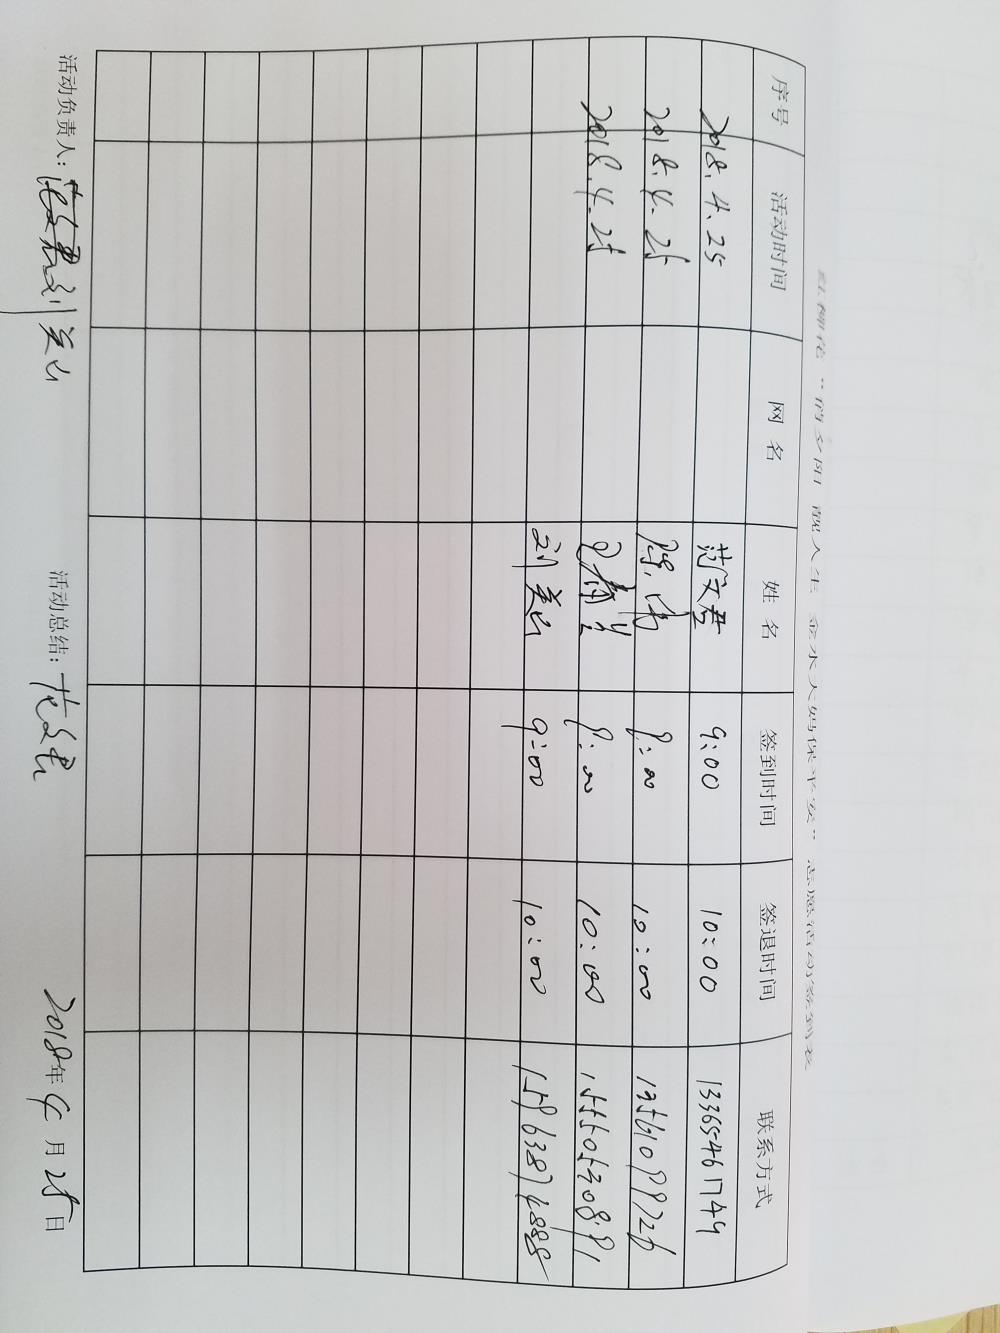 红柳花“俏夕阳 靓人生 金水大妈保平安”志愿活动签到表
序号 活动时间 网 名 姓 名 签到时间 签退时间 联系方式
2018.4.25 范文君 9:00 10:00 13365461749
2018.4.25 9:00 10:00
2018.4.25 9:00 10:00
刘美山 9:00 10:00
活动负责人: 刘美山 活动总结: 范文君 2018年4月25日